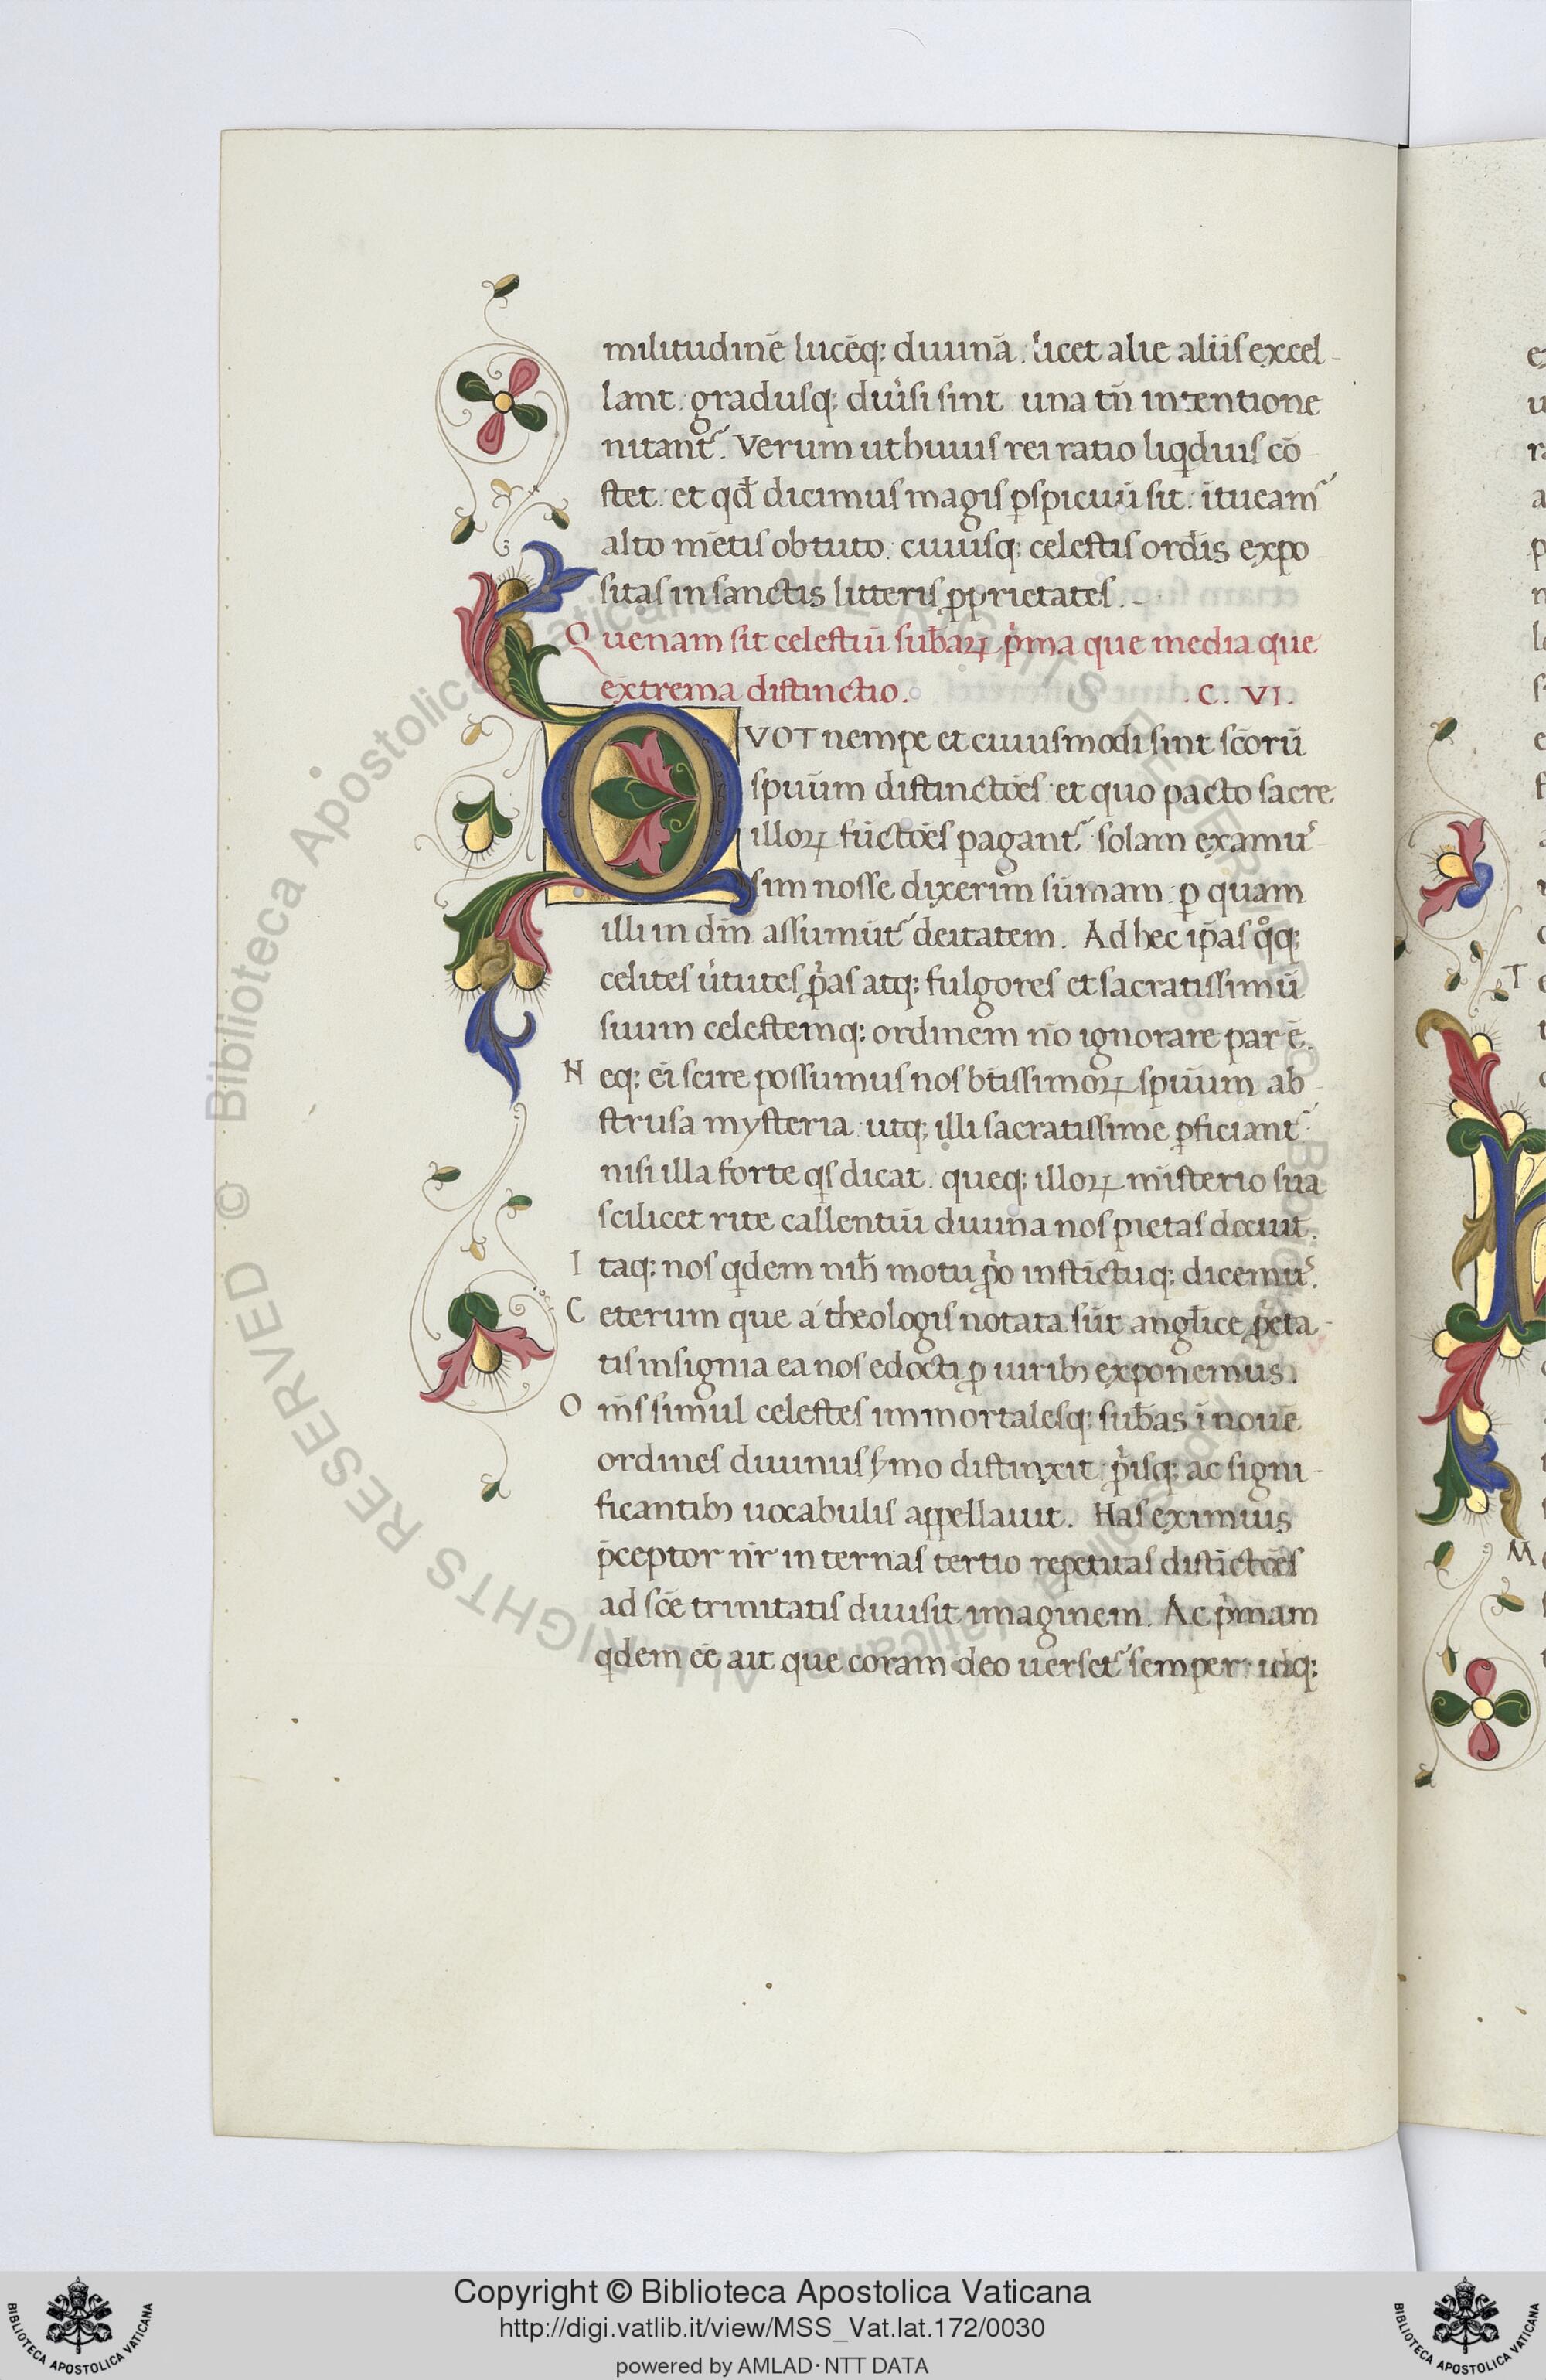 militudinē lucēq; diuinā. licet alie aliis excel-
lant. gradusq; diu̓si sint una tn̄ intentione
nitant᷑. Verum ut huius rei ratio liq̇dius cō
stet. et qđ dicimus magis ꝑspicuū sit. ītueam᷑
alto mētis obtuto. cuiusq; celestis ordīs expo
sitas in sanctis litteris ꝓprietates.
Quenam sit celestiū sub̄aꝝ p̓ma que media que
extrema distinctio. .C. VI.
QVOT nempe et cuiusmodi sint sc̄orū
spūum distinctōes et quo pacto sacre
illoꝝ fūctōes pagant᷑ solam examu᷑
sim nosse dixerim sūmam. ꝑ quam
illi in dm̄ assumūt᷑ deitatem. Ad hec ip̄as qͦq;
celites u̓tutes p̓as atq; fulgores et sacratissimū
suum celestemq; ordinem nō ignorare par ē.
Neq; ei̇ scire possumus nos btīssimoꝝ spūum ab-
strusa mysteria utq; illi sacratissime ꝑficiant᷑
nisi illa forte qs dicat. queq; illoꝝ mīsterio sua
scilicet rite callentiū diuina nos pietas docuit.
Itaq; nos qdem nih̄ motu p̓o instīctuq; dicemu᷒.
Ceterum que a theologis notata sūt anglīce pieta-
tis insignia ea nos edocti ꝑ uirib; exponemus.
Om̄s simul celestes immortalesq; sub̄as ī nouē
ordines diuinus ẜmo distinxit p̓isq; ac signi-
ficantib; uocabulis appellauit. Has eximius
p̄ceptor nr̄ in ternas tertio repetitas distīctōes
ad sc̄e trinitatis diuisit imaginem. Ac p̓mam
qdem eē ait que coram deo uerset᷑ semper: idq;
Copyright © Biblioteca Apostolica Vaticana
http://digi.vatlib.it/view/MSS_Vat.lat.172/0030
powered by AMLAD·NTT DATA
BIBLIOTECA APOSTOLICA VATICANA
BIBLIOTECA APOSTOLICA VATICANA
© Biblioteca Apostolica Vaticana ALL RIGHTS RESERVED